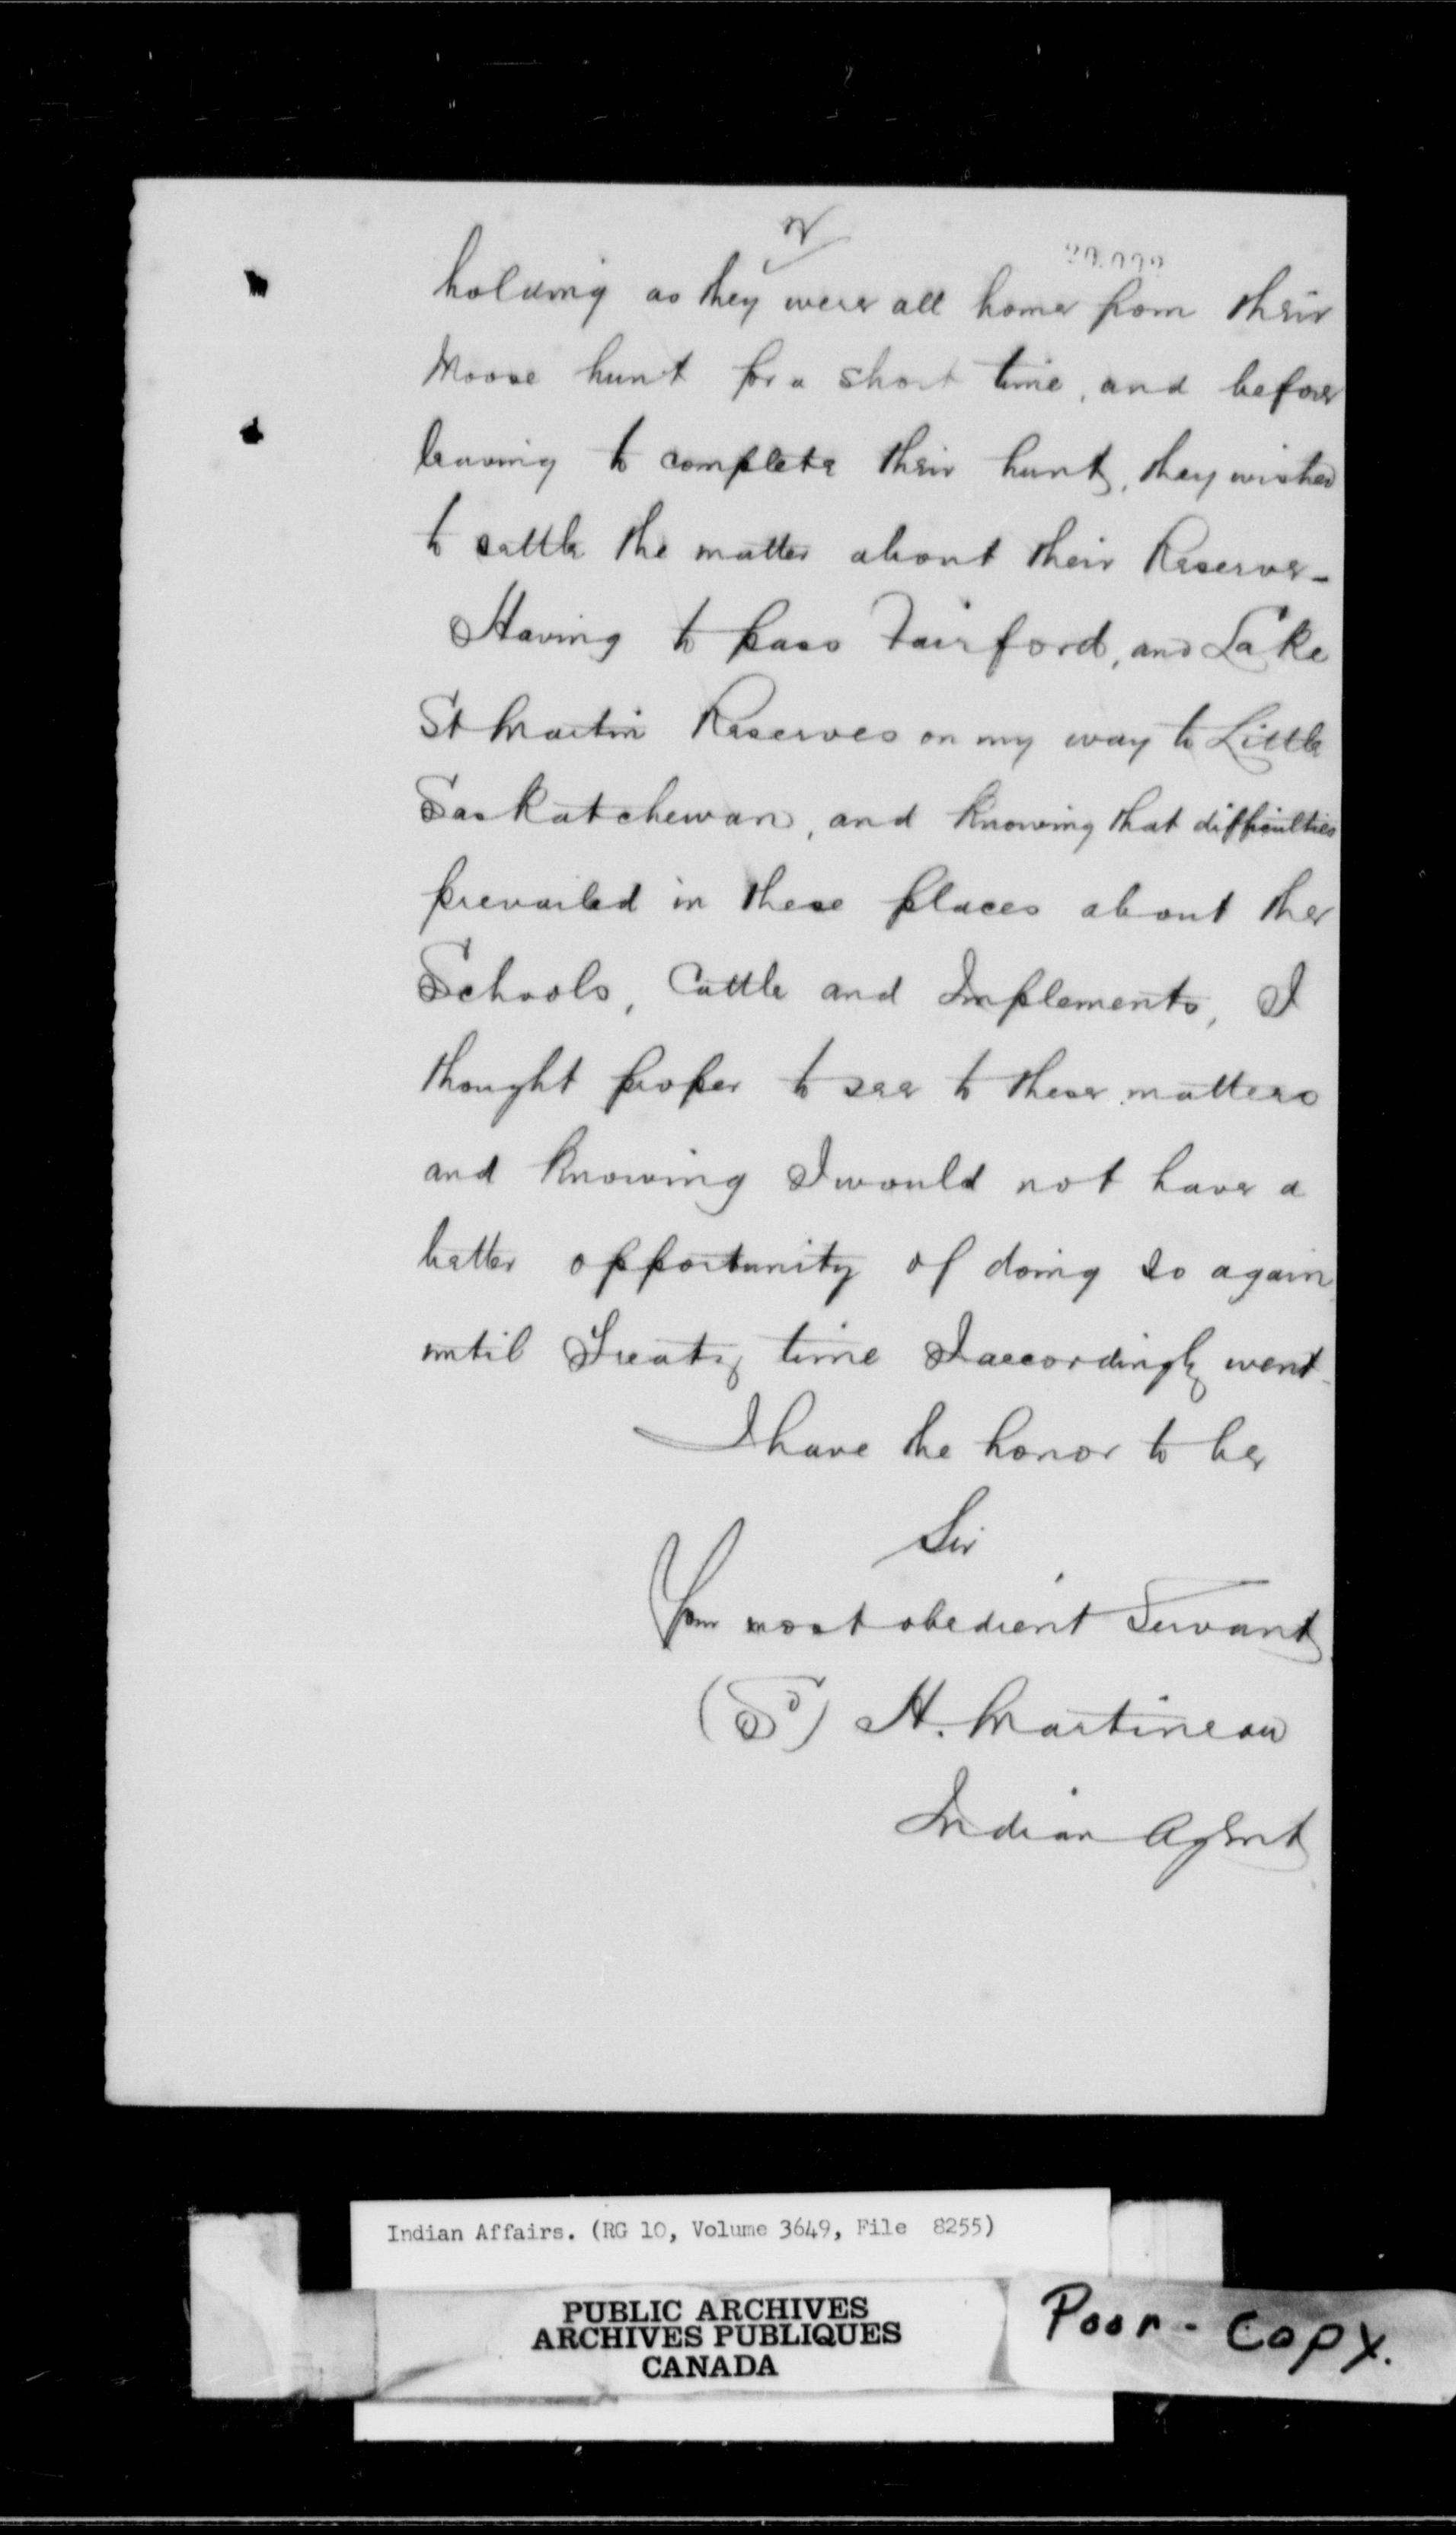 holding as they were all home from their
Moose hunt for a short time, and before
leaving to complete their hunt, they wished
to settle the matter about their Reserve -
Having to pass Fairford, and Lake
St Martin Reserves on my way to Little
Saskatchewan, and Knowing that difficulties
prevailed in these places about the
Schools, Cattle and Implements, I
thought proper to see to these matters
and Knowing I would not have a
better opportunity of doing so again
until Treaty time I accordingly went -
I have the honor to be
Sir
Your most obedient Servant
(Sd) H. Martineau
Indian Agent
Indian Affairs. (RG 10, Volume 3649, File 8255)
PUBLIC ARCHIVES
ARCHIVES PUBLIQUES
CANADA
Poor - Copy.